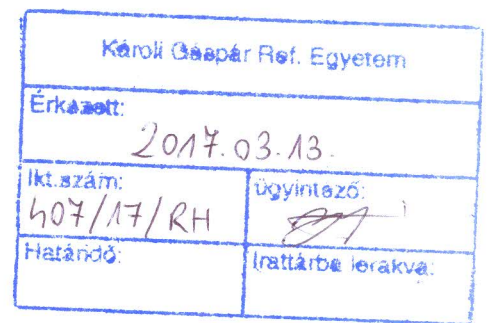 Károli Gáspár Ref. Egyetem
Érkezett:
2017.03.13.
Ikt.szám:
407/17/RH
ügyintéző:
Határidő:
Irattárba lerakva: